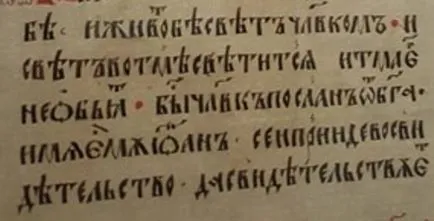 бѣ· и живо́тⷮ бѣ свѣтъ чл҃вкомъ · и
свѣтъ во тмѣ свѣтитсѧ и тма є
не ѡбьꙗⷮ · бы́ чл҃вкъ посланъ ѿ бг҃а·
имѧ ємꙋ їѡⷩ҇анъ · сеи прииде во сви
дѣтельство · да свидѣтельствꙋєⷮ